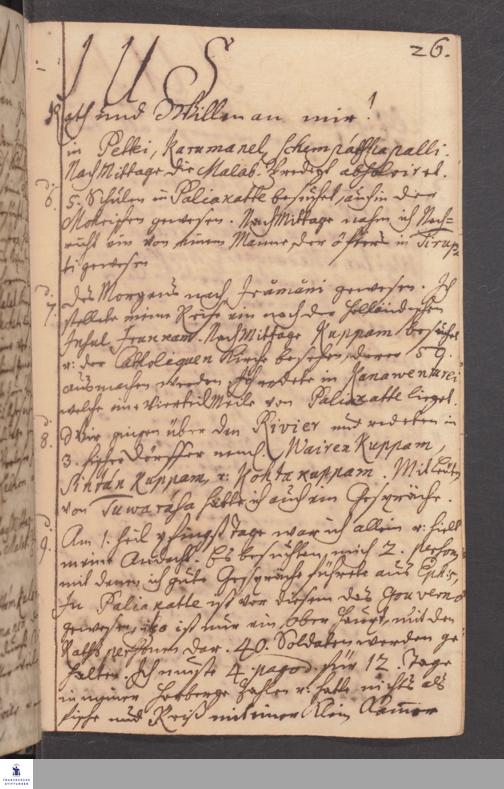 26.
I U S
Rath und Willen an mir!
in Petki, Karumanel, Schemparthapalli.
NachMittage die Malab. Predigt absolviret.
d. 6. 5. Schulen in Paliacatte besuchet, auch in der
Moheschee gewesen. NachMittage nahm ich Nach=
richt ein von einem Manne, der öffters in Tirup=
ti gewesen
d. 7. des Morgens nach Iramani gewesen. Ich
stellete meine Reise an nach der Holländischen
Insul NachMittage Kuppam besuchet
u: der Catholiquen Kirche besehen, derer 59.
ausmachen werden. Ich redete in Kanawenturei
welche eine viertel Meile von Paliacatte lieget.
d. 8. Wir gingen über den Rivier und redeten in
3. Dörffer nemh. Wairen Kuppam,
Sintan Kuppam, u: Kohta Kuppam. Mit Leuten
von Tuwarasa hatte ich auch ein Gespräche.
d. 9. Am 1. heil. pfingstTage war ich allein u: hielt
meine Andacht. Es besuchten mich 2. person
mit denen ich gute Gespräche führete aus Ephes.
In Paliacatte ist vor diesem das Gouverno
gewesen, itzo ist nur ein Ober Haupt mit den
Raths personen dar. 40. Soldaten werden ge=
halten. Ich muste 4. pagod. für 12. Tage
in meiner Herberge zahlen u: hatte nichts als
Fische und Reiß mit einer klein Kammer
FRANCKESCHE STIFTUNGEN